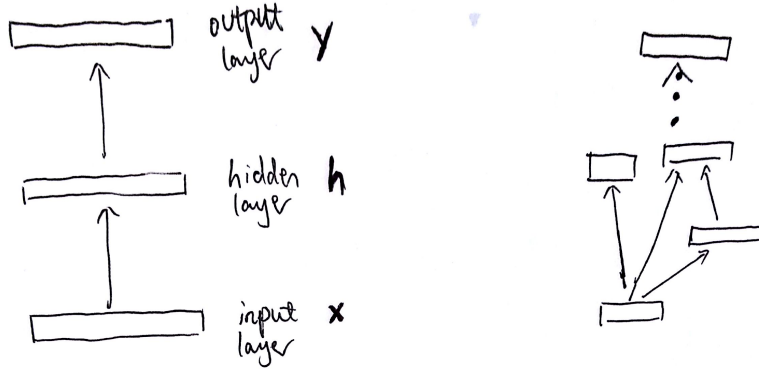 output
layer y
hidden
layer h
input
layer x